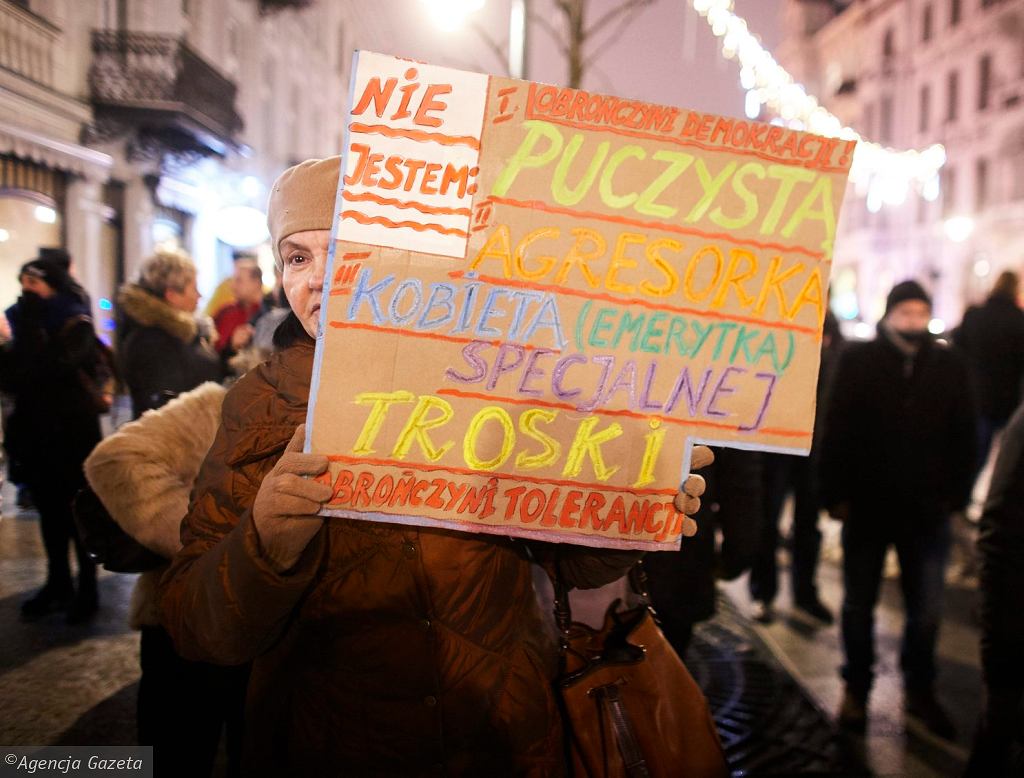 NIE
JESTEM:
I OBROŃCZYNI DEMOKRACJI!
PUCZYSTĄ
II AGRESORKĄ
III KOBIETĄ (EMERYTKĄ)
SPECJALNEJ
TROSKI
OBROŃCZYNI TOLERANCJI
©Agencja Gazeta